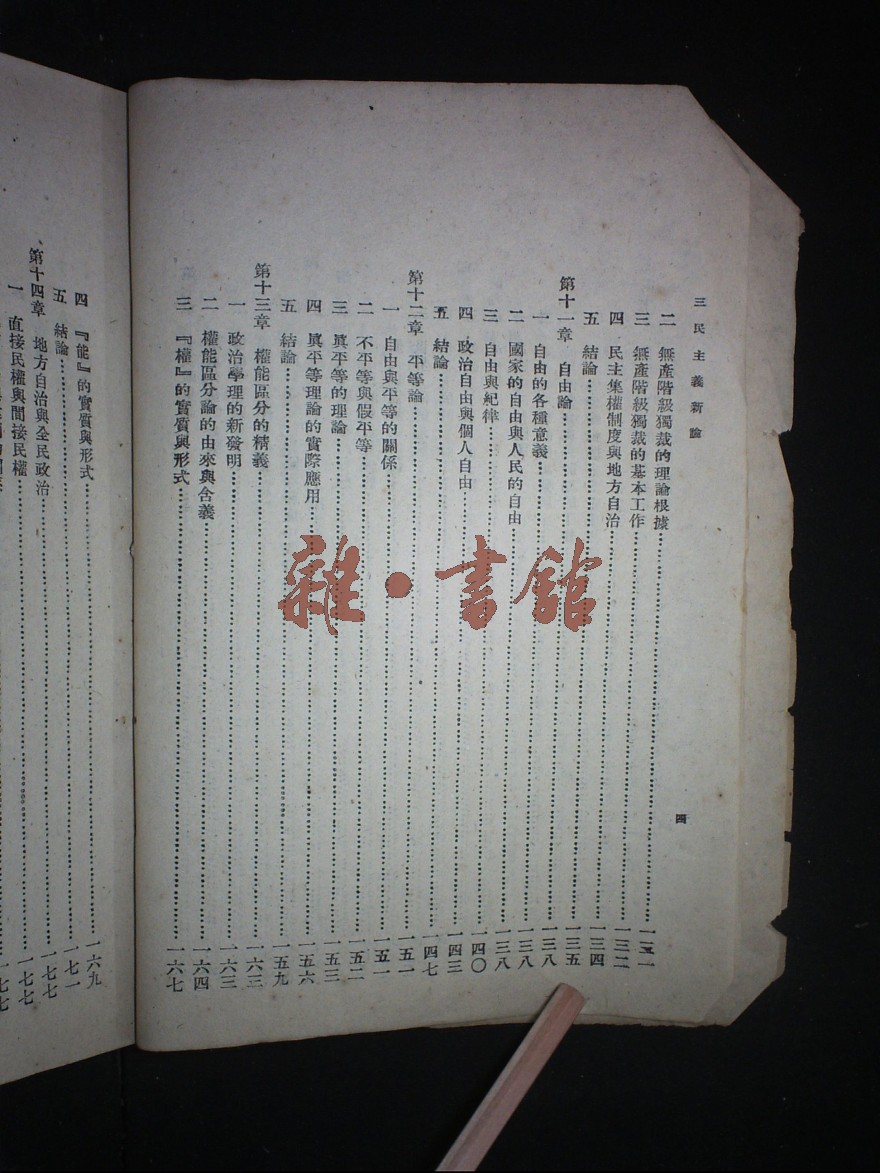 三民主義新論
四
二 無產階級獨裁的理論根據 一三一
三 無產階級獨裁的基本工作 一三二
四 民主集權制度與地方自治 一三四
五 結論 一三五
第十一章 自由論 一三八
一 自由的各種意義 一三八
二 國家的自由與人民的自由 一四〇
三 自由與紀律 一四三
四 政治自由與個人自由 一四七
五 結論 一五一
第十二章 平等論 一五一
一 自由與平等的關係 一五二
二 不平等與假平等 一五三
三 眞平等的理論 一五六
四 眞平等理論的實際應用 一五九
五 結論 一六三
第十三章 權能區分的精義 一六三
一 政治學理的新發明
二 權能區分論的由來與含義 一六四
三 『權』的實質與形式 一六七
四 『能』的實質與形式 一六九
五 結論 一七一
第十四章 地方自治與全民政治 一七七
一 直接民權與間接民權 一七七
雜·書館